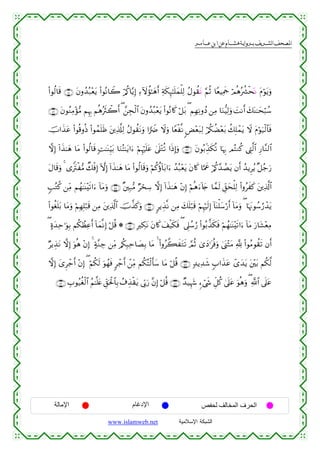 المصحف الشريف برواية هشام عن ابن عامر
وَيَوْمَ نَحْشُرُهُمْ جَمِيعًا ثُمَّ نَقُولُ لِلْمَلَٰٓئِكَةِ أَهَٰٓؤُلَآءِ إِيَّاكُمْ كَانُوا۟ يَعْبُدُونَ ۝ قَالُوا۟
سُبْحَٰنَكَ أَنتَ وَلِيُّنَا مِن دُونِهِم ۖ بَلْ كَانُوا۟ يَعْبُدُونَ ٱلْجِنَّ ۖ أَكْثَرُهُم بِهِم مُّؤْمِنُونَ ۝
فَٱلْيَوْمَ لَا يَمْلِكُ بَعْضُكُمْ لِبَعْضٍ نَّفْعًا وَلَا ضَرًّا وَنَقُولُ لِلَّذِينَ ظَلَمُوا۟ ذُوقُوا۟ عَذَابَ
ٱلنَّارِ ٱلَّتِى كُنتُم بِهَا تُكَذِّبُونَ ۝ وَإِذَا تُتْلَىٰ عَلَيْهِمْ ءَايَٰتُنَا بَيِّنَٰتٍ قَالُوا۟ مَا هَٰذَآ إِلَّا
رَجُلٌ يُرِيدُ أَن يَصُدَّكُمْ عَمَّا كَانَ يَعْبُدُ ءَابَآؤُكُمْ وَقَالُوا۟ مَا هَٰذَآ إِلَّآ إِفْكٌ مُّفْتَرًى ۚ وَقَالَ
ٱلَّذِينَ كَفَرُوا۟ لِلْحَقِّ لَمَّا جَآءَهُمْ إِنْ هَٰذَآ إِلَّا سِحْرٌ مُّبِينٌ ۝ وَمَآ ءَاتَيْنَٰهُم مِّن كُتُبٍ
يَدْرُسُونَهَا ۖ وَمَآ أَرْسَلْنَآ إِلَيْهِمْ قَبْلَكَ مِن نَّذِيرٍ ۝ وَكَذَّبَ ٱلَّذِينَ مِن قَبْلِهِمْ وَمَا بَلَغُوا۟
مِعْشَارَ مَآ ءَاتَيْنَٰهُمْ فَكَذَّبُوا۟ رُسُلِى ۖ فَكَيْفَ كَانَ نَكِيرِ ۝ ۞ قُلْ إِنَّمَآ أَعِظُكُم بِوَٰحِدَةٍ ۖ
أَن تَقُومُوا۟ لِلَّهِ مَثْنَىٰ وَفُرَٰدَىٰ ثُمَّ تَتَفَكَّرُوا۟ ۚ مَا بِصَاحِبِكُم مِّن جِنَّةٍ ۚ إِنْ هُوَ إِلَّا نَذِيرٌ
لَّكُم بَيْنَ يَدَىْ عَذَابٍ شَدِيدٍ ۝ قُلْ مَا سَأَلْتُكُم مِّنْ أَجْرٍ فَهُوَ لَكُمْ ۖ إِنْ أَجْرِىَ إِلَّا
عَلَى ٱللَّهِ ۖ وَهُوَ عَلَىٰ كُلِّ شَىْءٍ شَهِيدٌ ۝ قُلْ إِنَّ رَبِّى يَقْذِفُ بِٱلْحَقِّ عَلَّٰمُ ٱلْغُيُوبِ ۝
الحرف المخالف لحفص الإدغام الإمالة
الشبكة الإسلامية www.islamweb.net